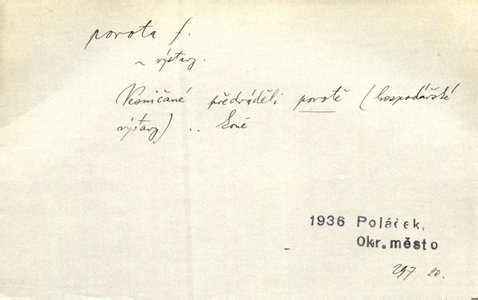 porota f.
~ výstavy.
Vesničané předváděli porotě (hospodářské
výstavy) .. koně
1936 Poláček,
Okr. město
297 20.